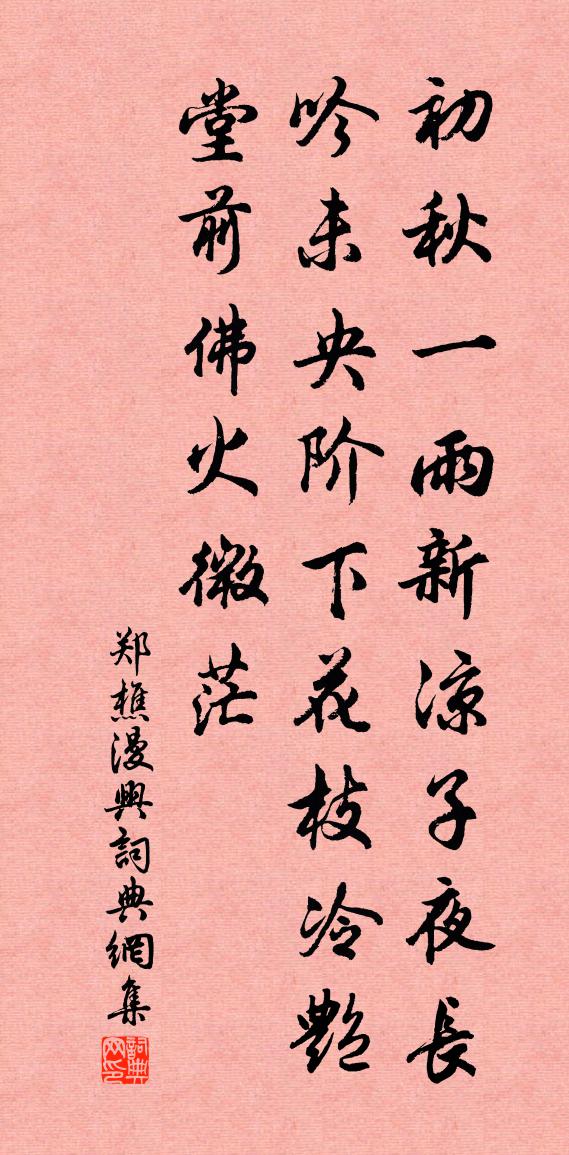 初秋一雨新涼子夜長
吟未央阶下花枝冷艷
堂前佛火微茫
郑樵漫興詞典網集
詞典網印